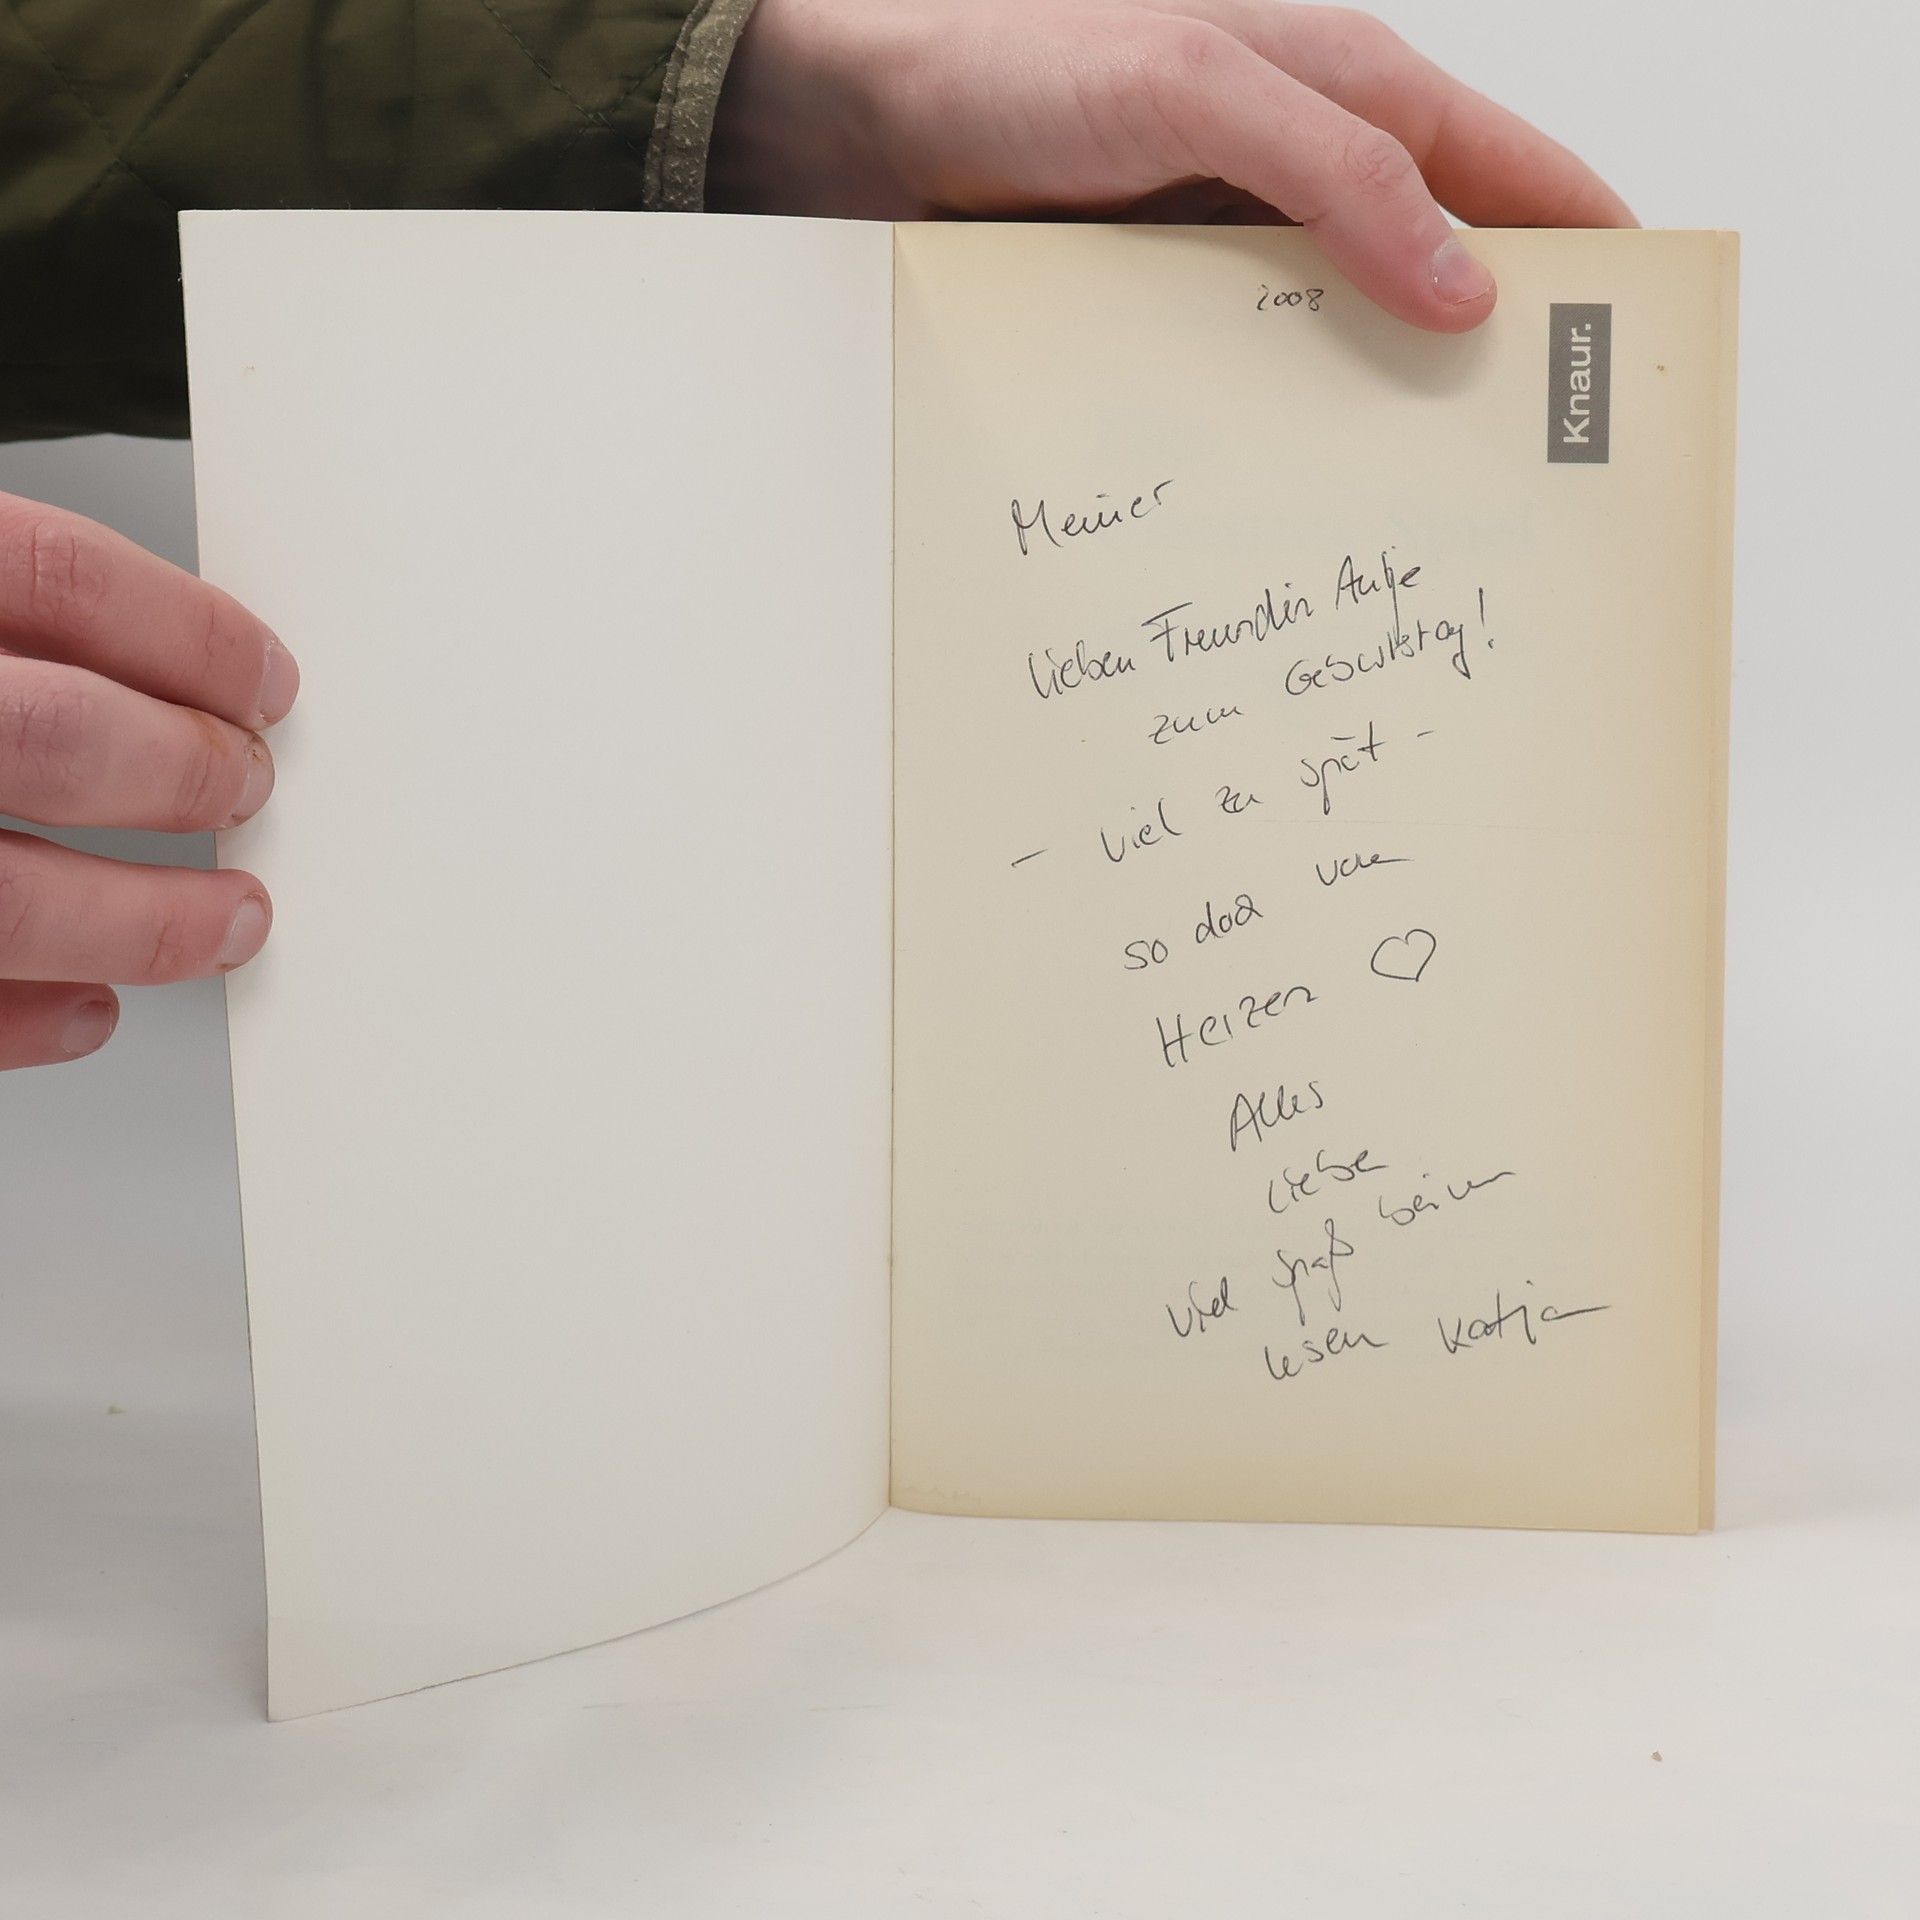 2008
Knaur.
Meiner
lieben Freundin Antje
zum Geburtstag!
- viel zu spät -
so doch von
Herzen ♡
Alles
Liebe
viel Spaß beim
lesen Katja